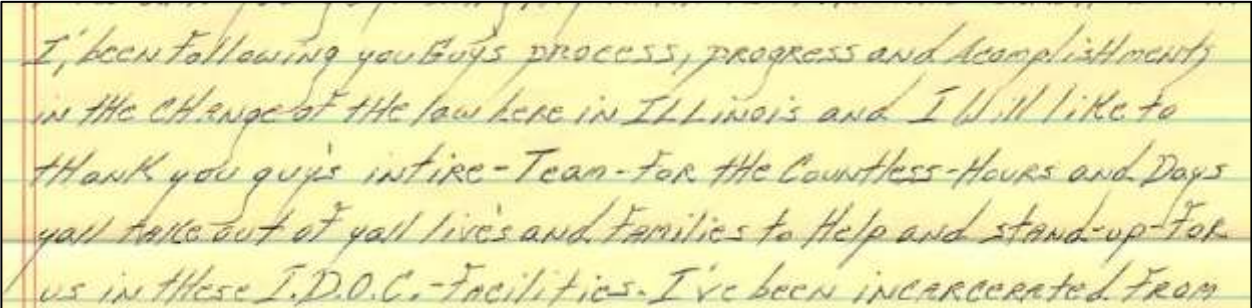 I, been Following you Guys process, progress and Acomplishments
in tHe CHange of tHe law here in ILLinois and I Will like to
tHank you guy's intire-Team-For tHe Countless-Hours and Days
yall take out of yall live's and Families to Help and stand-up-For
us in tHese I.D.O.C.-Facilities. I've been incarcerated From